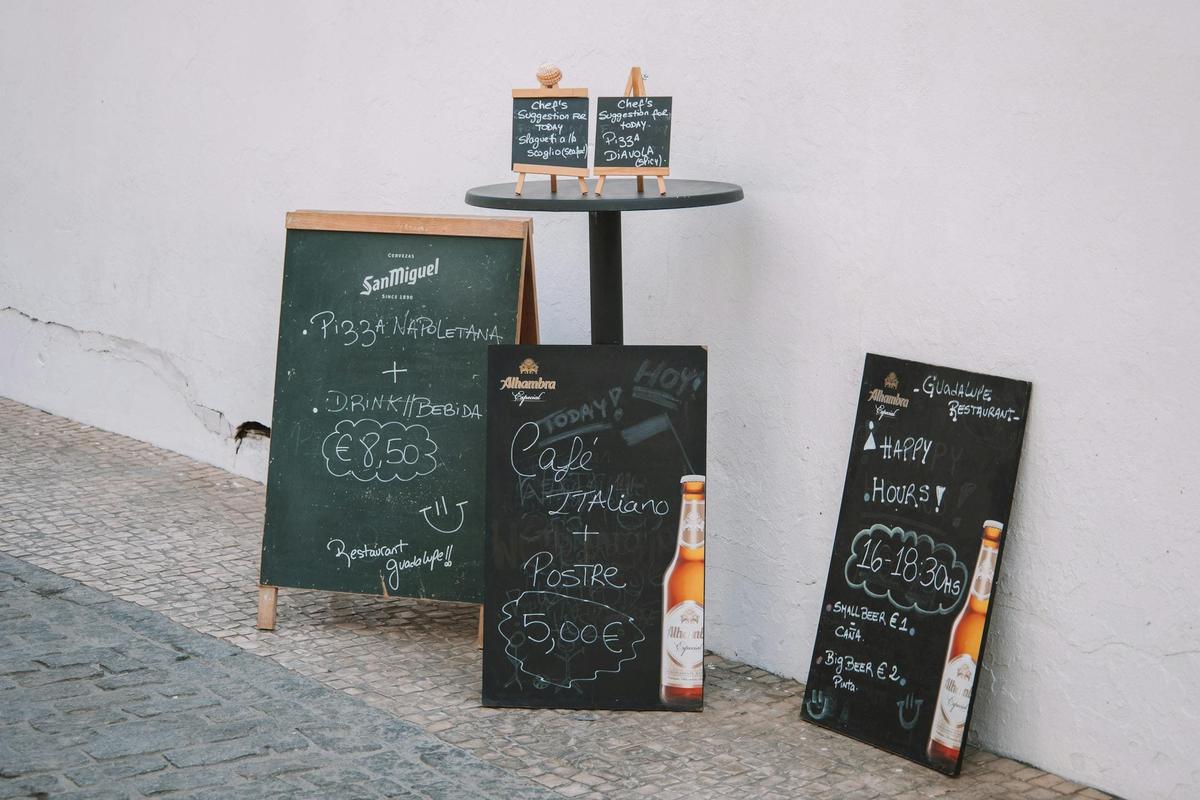 Chef's
Suggestion FOR
TODAY
Spagueti a lo
scoglio (Seafood)
Chef's
Suggestion for
TODAY.
Pizza
DiAVOLA
(Spicy).
CERVEZAS
SanMiguel
SINCE 1890
• Pizza NAPOLETANA
+
• DRINK//BEBIDA
€8,50
Restaurant
guadalupe!!
Alhambra
Especial
HOY!
TODAY!
Café
ITALiano
+
POSTRE
5,00€
Alhambra
Especial
Alhambra
Especial
- GUADALUPE
RESTAURANT -
HAPPY
HOURS!
16-18:30HS
• SMALL BEER €1.
CAÑA.
• Big BEER €2.
Pinta.